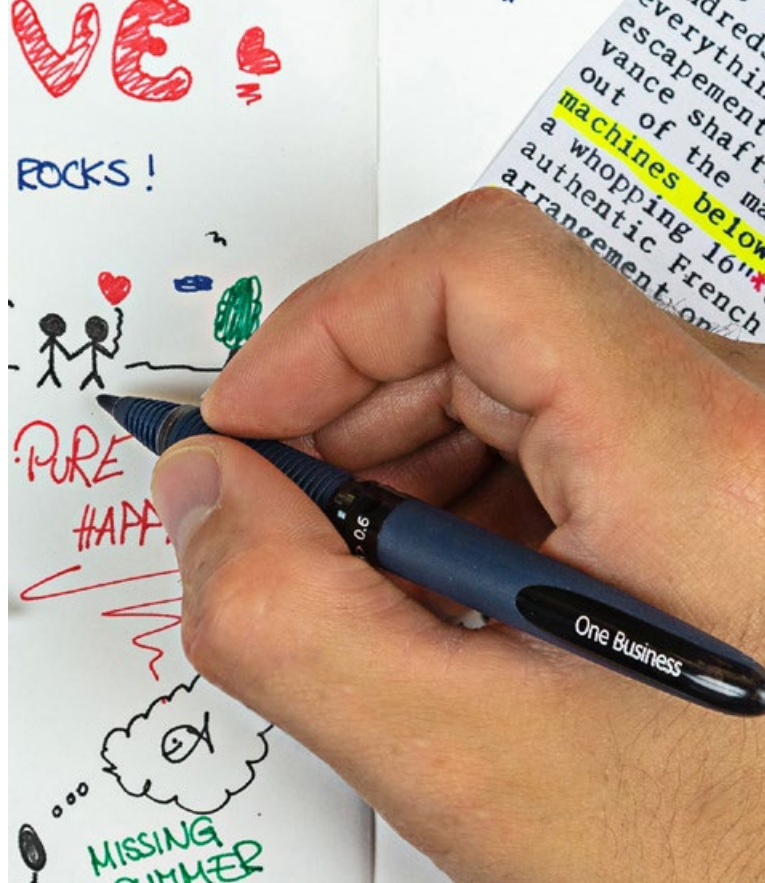 VE
ROCKS!
PURE
HAPP
MISSING
SUMMER
0.6
One Business
everythin
escapement
vance shaft
out of the ma
machines below
a whopping 16"*
authentic French
arrangement on